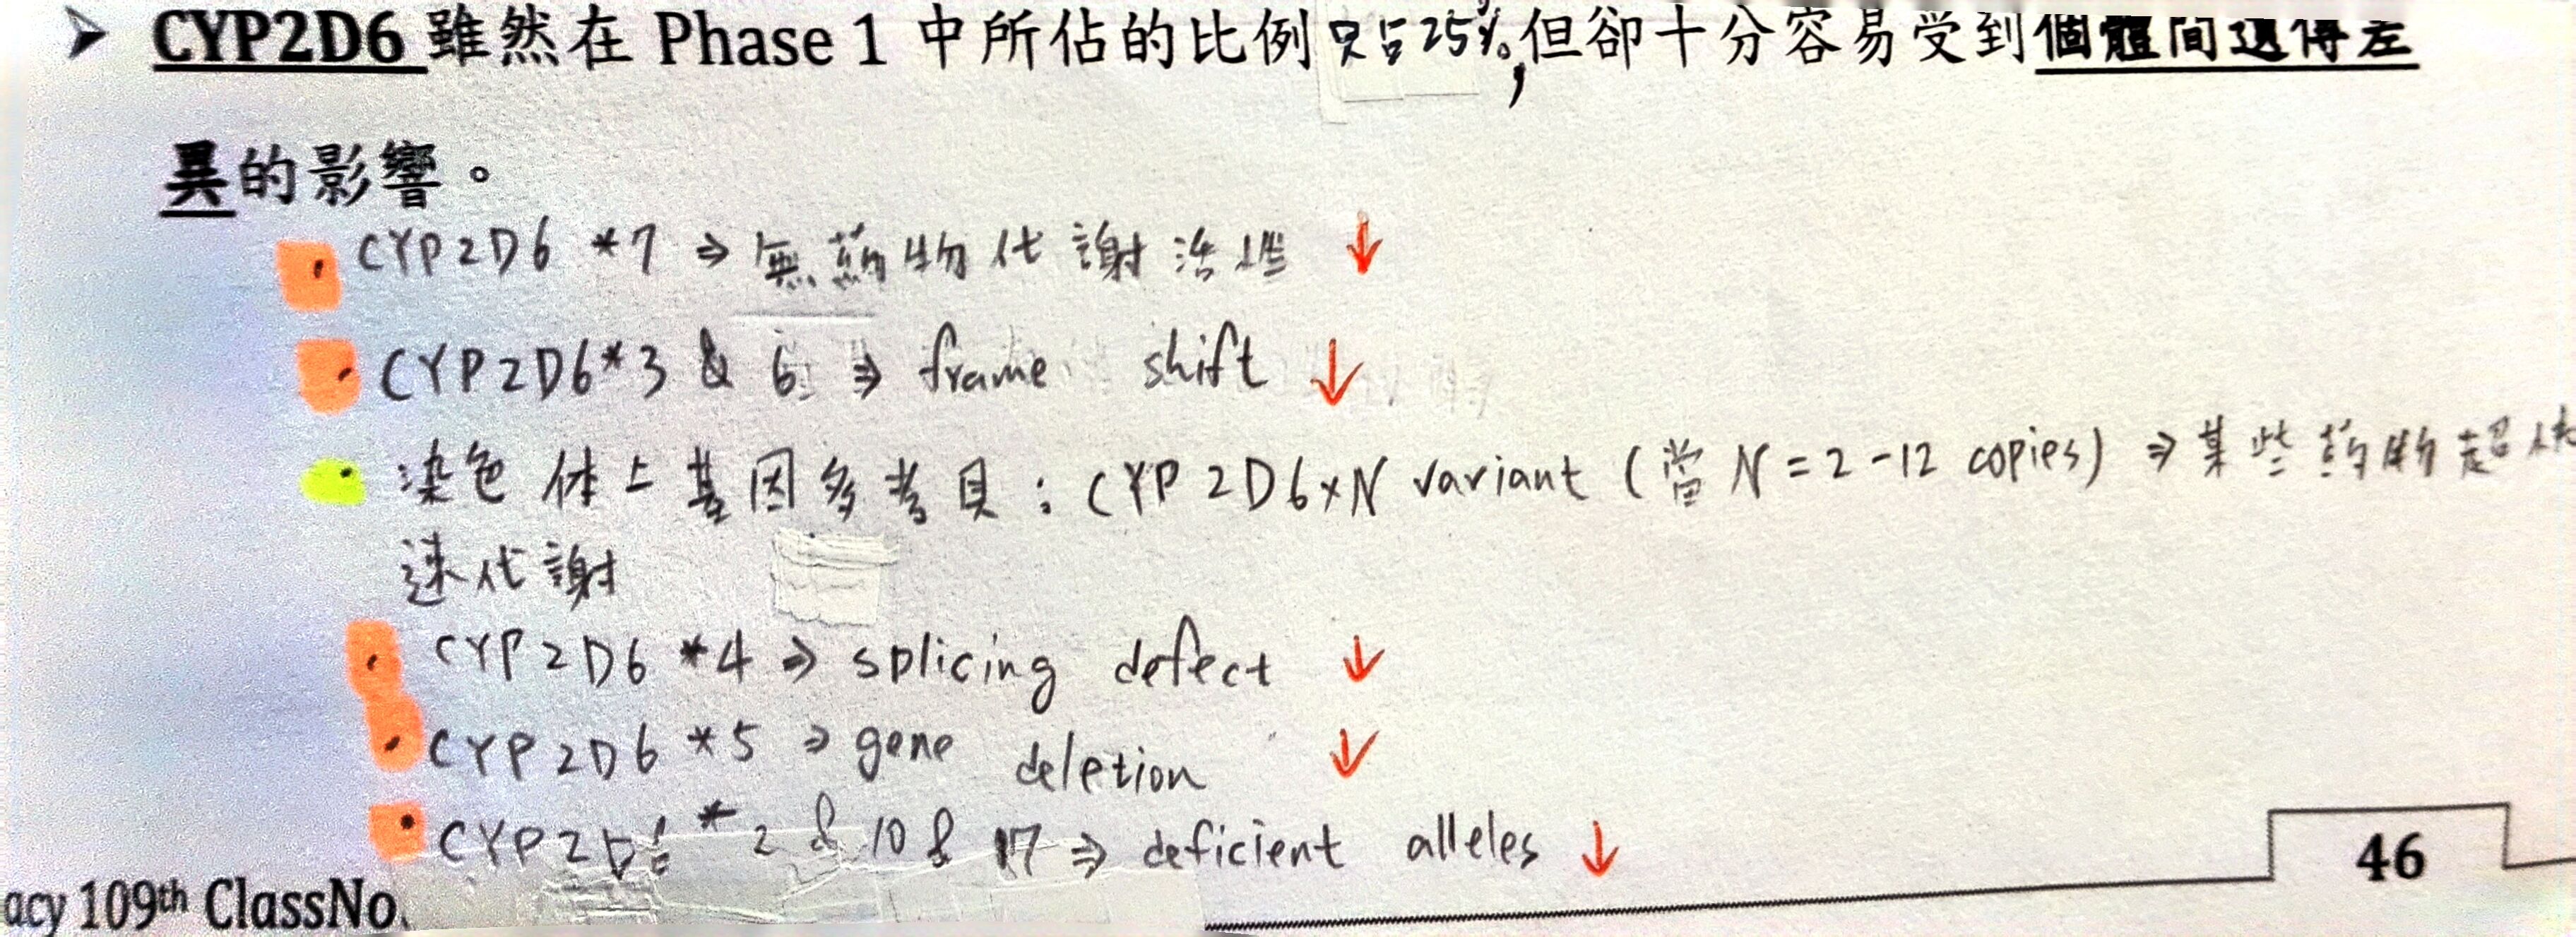 ➤ CYP2D6 雖然在 Phase 1 中所佔的比例只占25%,但卻十分容易受到個體間遺傳差
異的影響。
• CYP2D6 *7 ⇒ 無药物代謝活性 ↓
• CYP2D6*3 & 6 ⇒ frame shift ↓
• 染色体上基因多拷貝:CYP2D6xN variant (當 N=2-12 copies) ⇒ 某些药物超快
速代謝
• CYP2D6 *4 ⇒ splicing defect ↓
• CYP2D6 *5 ⇒ gene deletion ↓
• CYP2D6 *2 & 10 & 17 ⇒ deficient alleles ↓
46
acy 109th ClassNo.